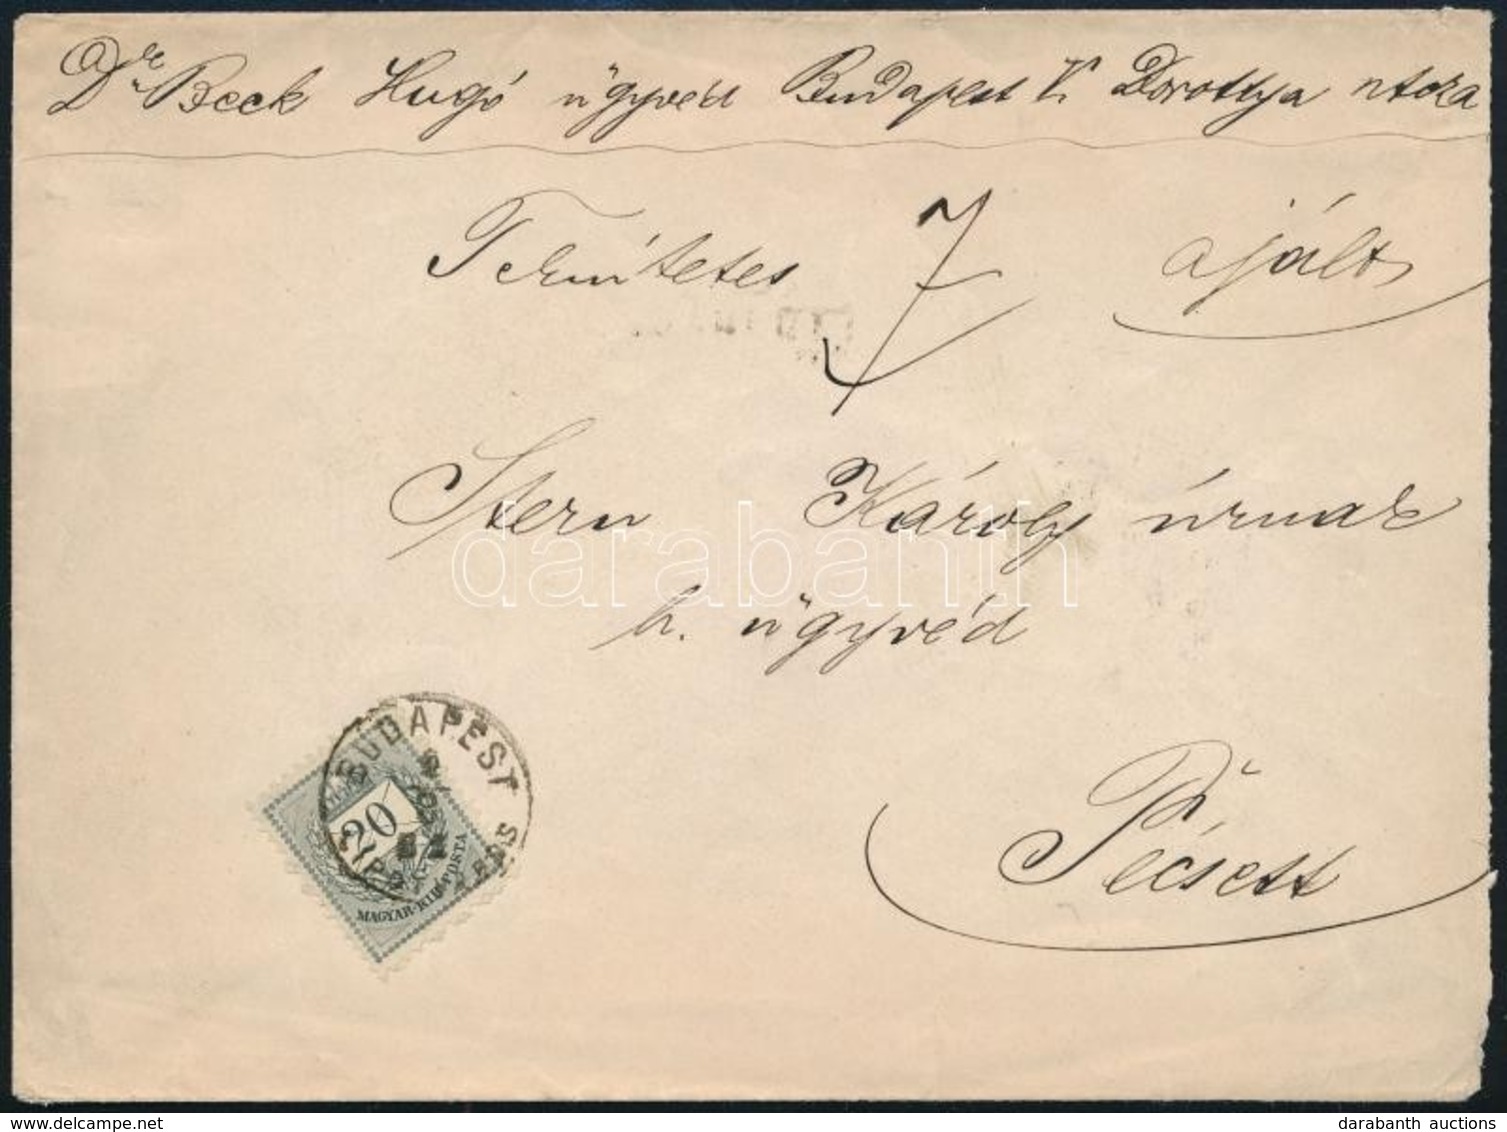 Dr Beck Hugó ügyvéd Budapest V. Dorottya utcza
Térítetes 7 ajált
Stern Károly úrnak
h. ügyvéd
Pécsett
BUDAPEST
20
MAGYAR KIR. POSTA
darabanth
delcampe.net
darabanth auctions